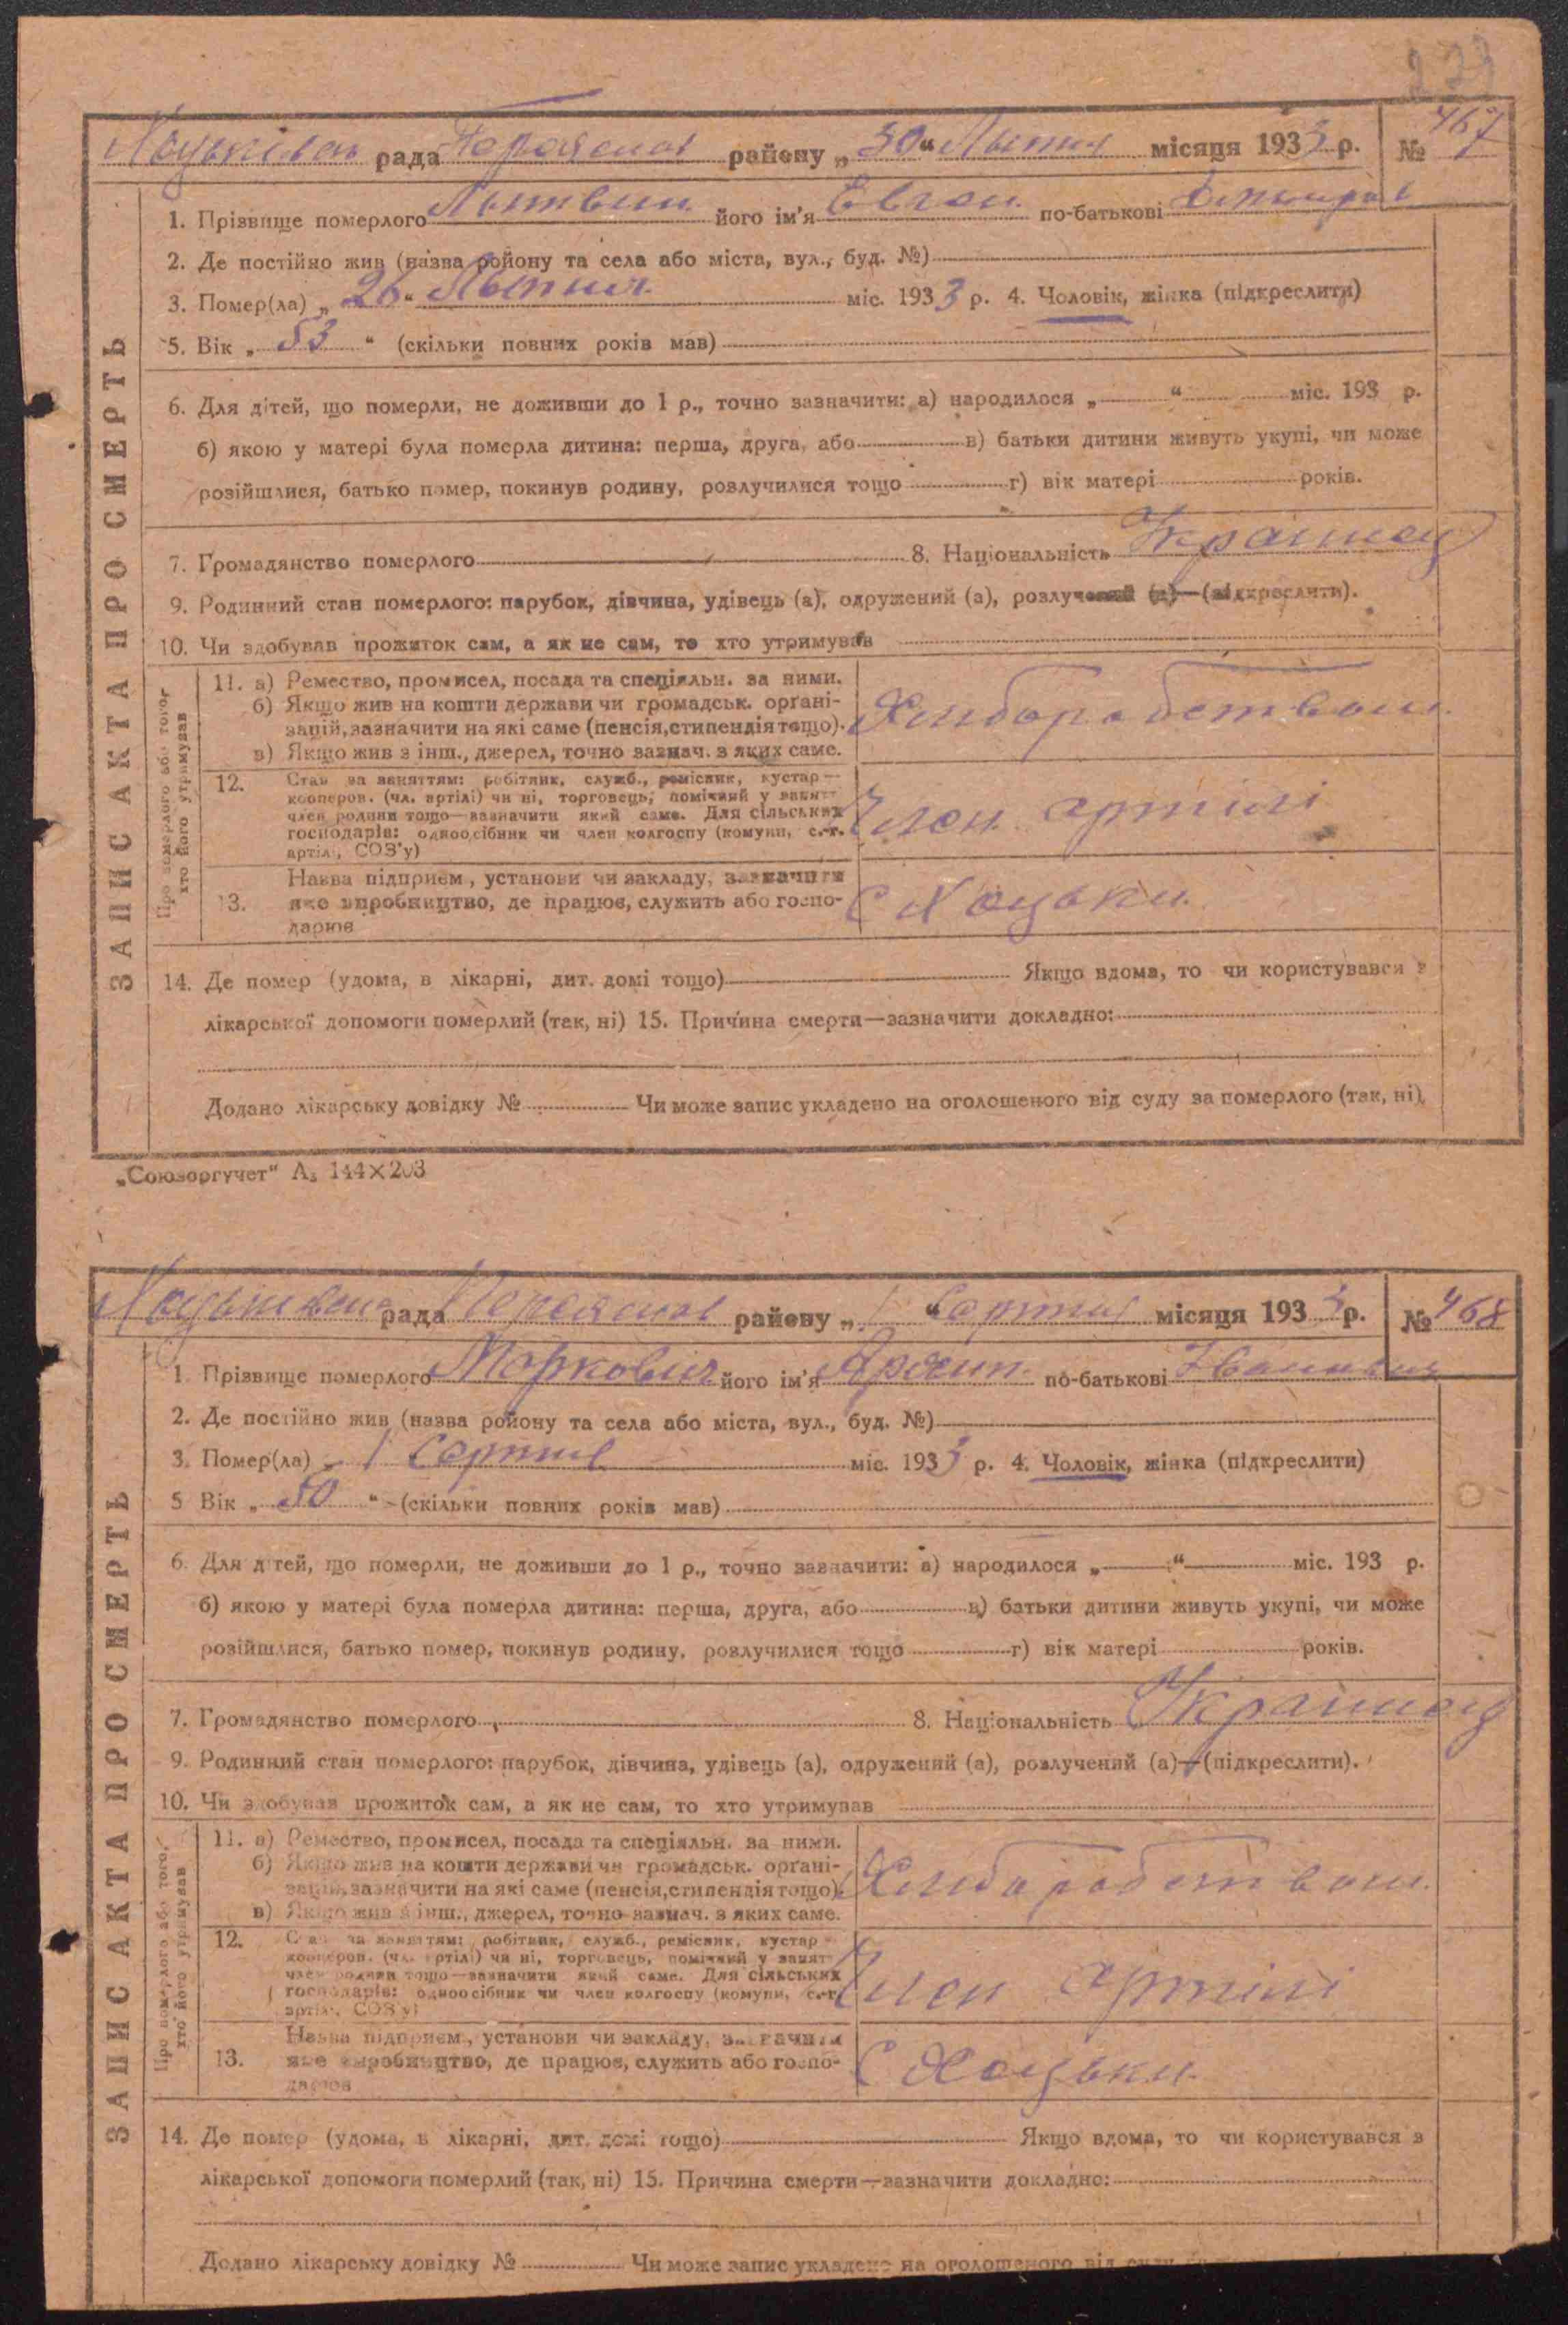 223
Хоцьківська рада Переяслав району „30“ Липня місяця 1933 р. № 467
1. Прізвище померлого Литвин його ім'я Евген по-батькові
2. Де постійно жив (назва району та села або міста, вул., буд. №)
3. Помер(ла) „26“ Липня міс. 1933 р. 4. Чоловік, жінка (підкреслити)
5. Вік „53“ (скільки повних років мав)
6. Для дітей, що померли, не доживши до 1 р., точно зазначити: а) народилося „ “ міс. 193 р.
б) якою у матері була померла дитина: перша, друга, або в) батьки дитини живуть укупі, чи може
розійшлися, батько помер, покинув родину, розлучилися тощо г) вік матері років.
7. Громадянство померлого 8. Національність Українец
9. Родинний стан померлого: парубок, дівчина, удівець (а), одружений (а), розлучений (а)—(підкреслити).
10. Чи здобував прожиток сам, а як не сам, то хто утримував
11. а) Ремество, промисел, посада та спеціяльн. за ними.
б) Якщо жив на кошти держави чи громадськ. орґані-
зацій, зазначити на які саме (пенсія, стипендія тощо).
в) Якщо жив з інш., джерел, точно зазнач. з яких саме.
Хлиборобством
12. Стан за заняттям: робітник, служб., ремісник, кустар—
кооперов. (чл. артілі) чи ні, торговець, помічний у занят
член родини тощо—зазначити який саме. Для сільських
господарів: одноосібник чи член колгоспу (комуни, с.-г.
артілі, СОЗ'у)
Член артілі
13. Назва підприєм., установи чи закладу, зазначити
яке виробництво, де працює, служить або госпо-
дарює
С Хоцьки
14. Де помер (удома, в лікарні, дит. домі тощо) Якщо вдома, то чи користувався з
лікарської допомоги померлий (так, ні) 15. Причина смерти—зазначити докладно:
Додано лікарську довідку № Чи може запис укладено на оголошеного від суду за померлого (так, ні).
ЗАПИС АКТА ПРО СМЕРТЬ
Про померлого або того,
хто його утримував
„Союзоргучет“ А₅ 144×203
Хоцьківська рада Переяслав району „1“ Серпня місяця 1933 р. № 468
1. Прізвище померлого Маркович його ім'я Архип по-батькові Іванович
2. Де постійно жив (назва району та села або міста, вул., буд. №)
3. Помер(ла) „1 Серпня міс. 1933 р. 4. Чоловік, жінка (підкреслити)
5 Вік „50“ (скільки повних років мав)
6. Для дітей, що померли, не доживши до 1 р., точно зазначити: а) народилося „ “ міс. 193 р.
б) якою у матері була померла дитина: перша, друга, або в) батьки дитини живуть укупі, чи може
розійшлися, батько помер, покинув родину, розлучилися тощо г) вік матері років.
7. Громадянство померлого 8. Національність Українец
9. Родинний стан померлого: парубок, дівчина, удівець (а), одружений (а), розлучений (а)—(підкреслити).
10. Чи здобував прожиток сам, а як не сам, то хто утримував
11. а) Ремество, промисел, посада та спеціяльн. за ними.
б) Якщо жив на кошти держави чи громадськ. орґані-
зацій, зазначити на які саме (пенсія, стипендія тощо).
в) Якщо жив з інш., джерел, точно зазнач. з яких саме.
Хлиборобством
12. Стан за заняттям: робітник, служб., ремісник, кустар—
кооперов. (чл. артілі) чи ні, торговець, помічний у занят
член родини тощо—зазначити який саме. Для сільських
господарів: одноосібник чи член колгоспу (комуни, с.-г.
артілі, СОЗ'у)
Член артілі
13. Назва підприєм., установи чи закладу, зазначити
яке виробництво, де працює, служить або госпо-
дарює
С Хоцьки
14. Де помер (удома, в лікарні, дит. домі тощо) Якщо вдома, то чи користувався з
лікарської допомоги померлий (так, ні) 15. Причина смерти—зазначити докладно:
Додано лікарську довідку № Чи може запис укладено на оголошеного від суду
ЗАПИС АКТА ПРО СМЕРТЬ
Про померлого або того,
хто його утримував